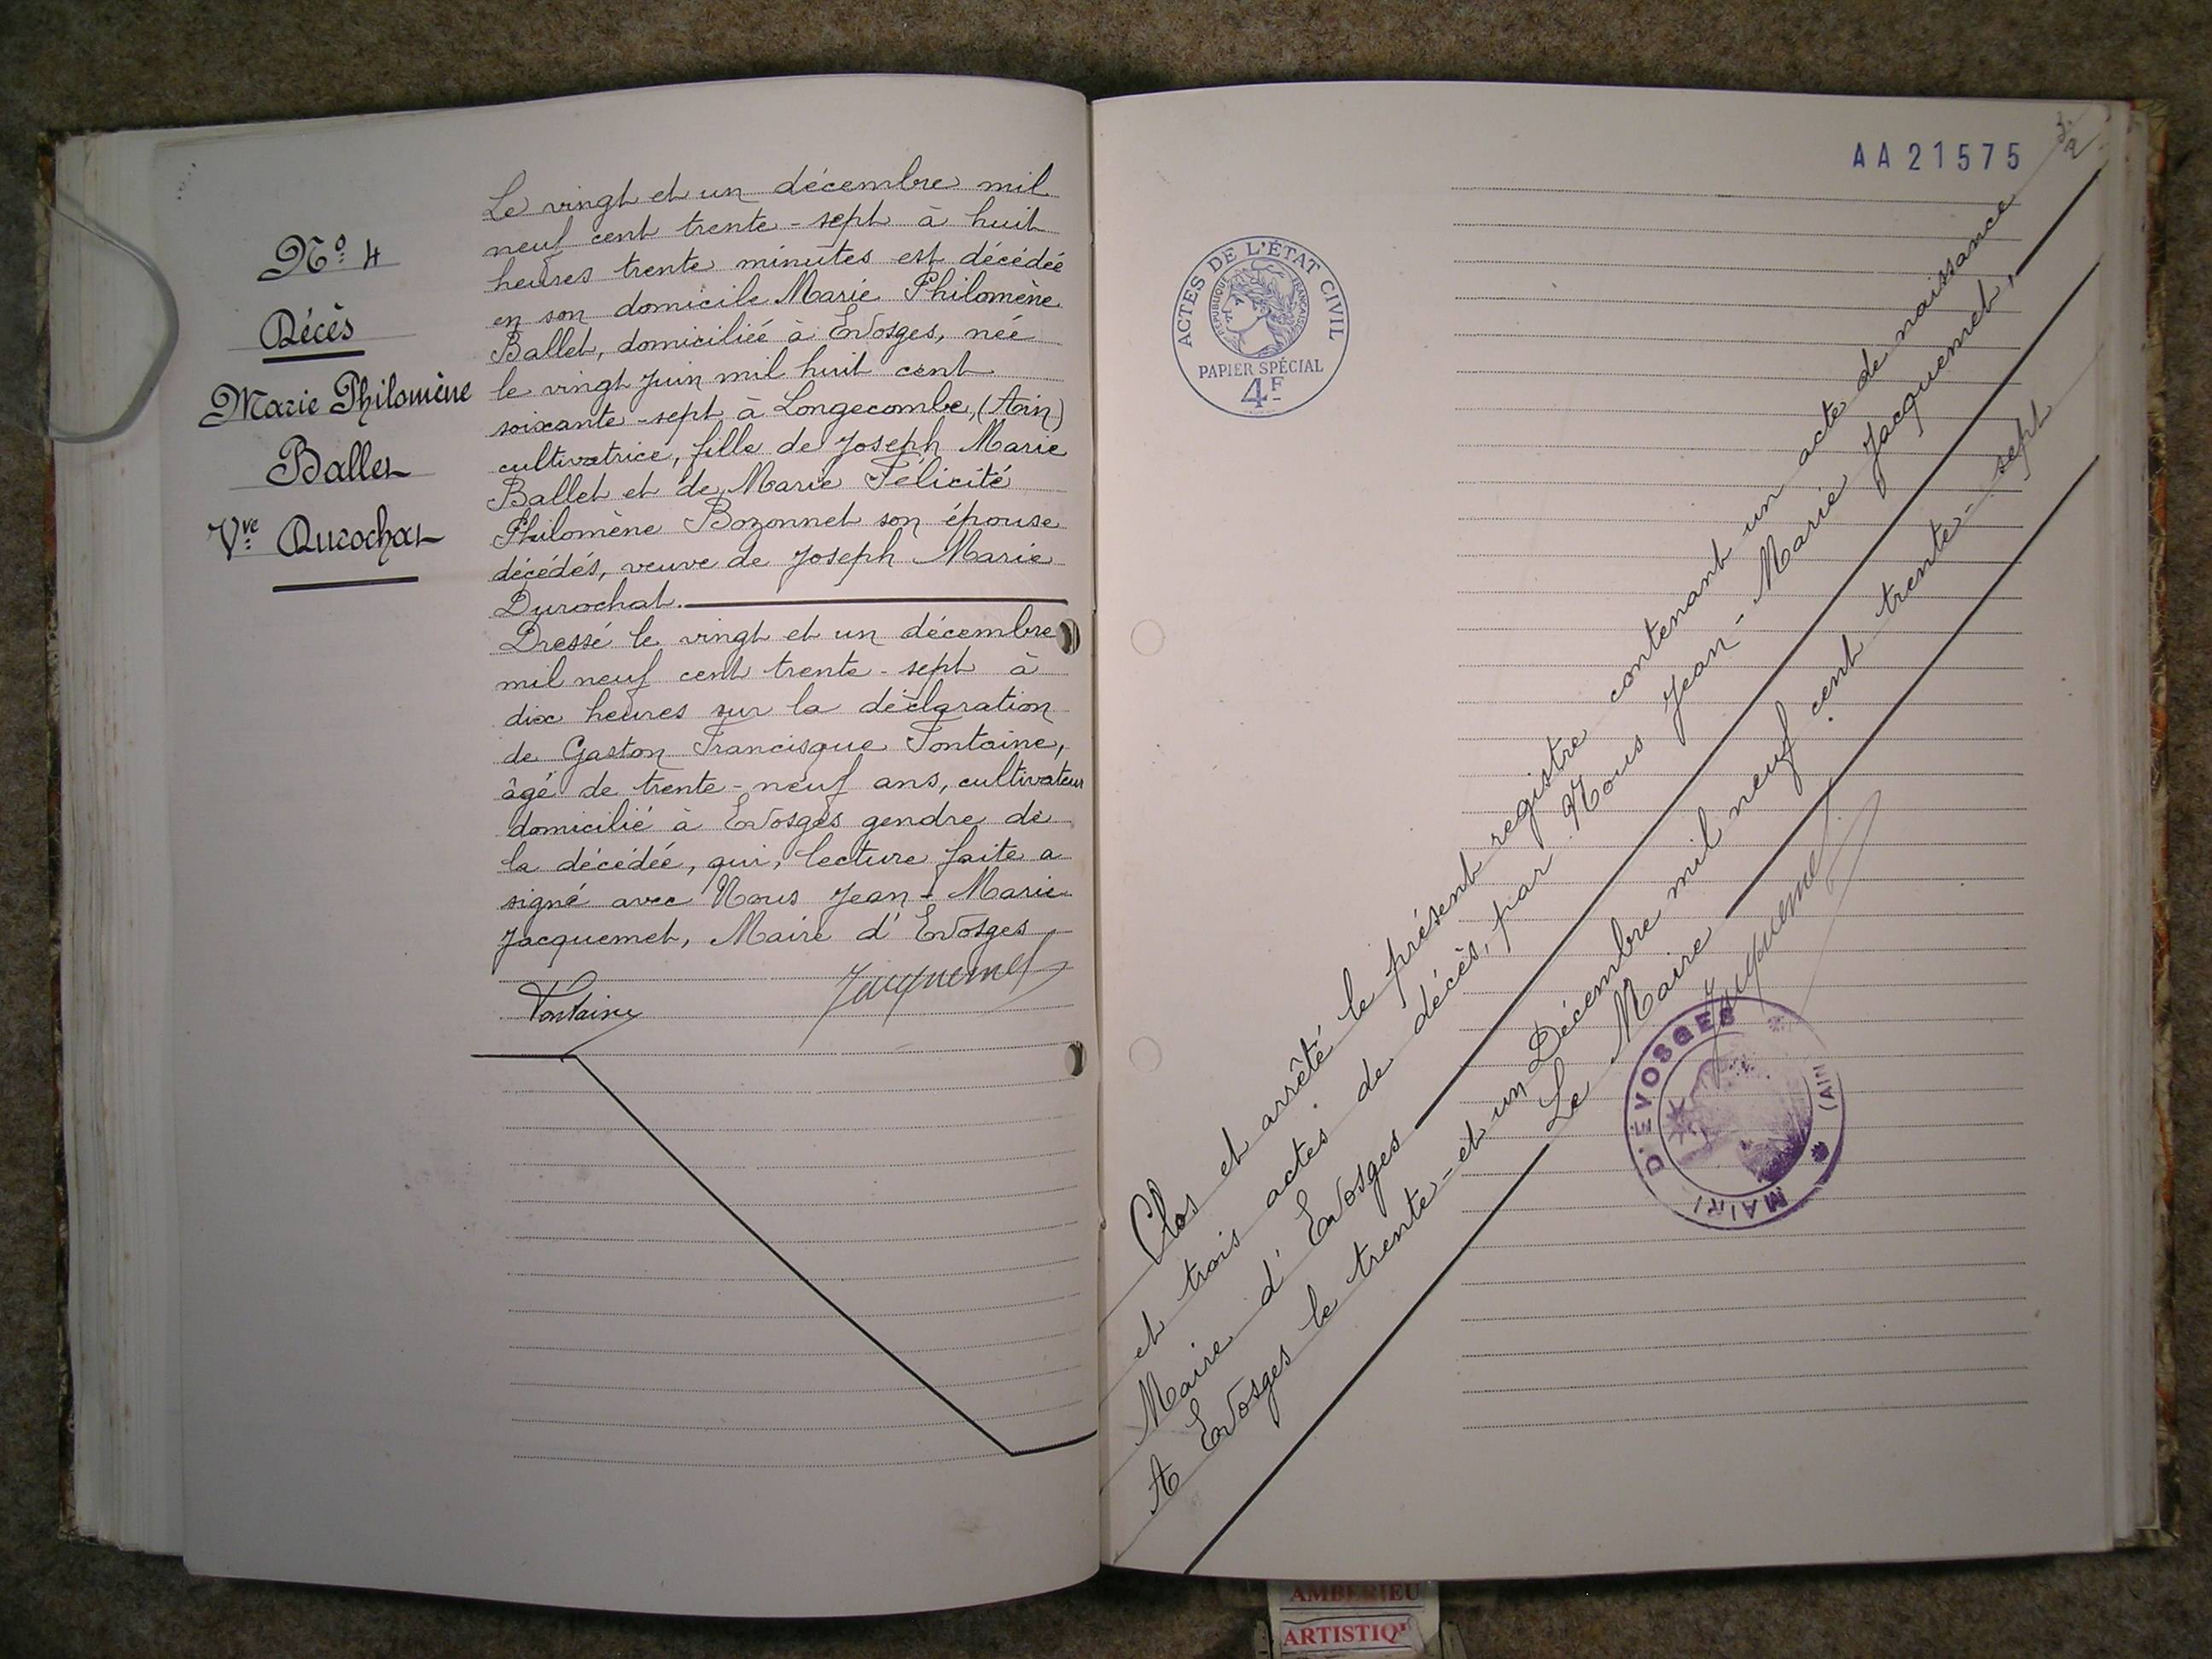 N° 4
Décès
Marie Philomène
Ballet
Vve Durochat
Le vingt et un décembre mil
neuf cent trente-sept à huit
heures trente minutes est décédée
en son domicile Marie Philomène
Ballet, domiciliée à Evosges, née
le vingt Juin mil huit cent
soixante-sept à Longecombe, (Ain)
cultivatrice, fille de Joseph Marie
Ballet et de Marie Félicité
Philomène Bozonnet son épouse
décédés, veuve de Joseph Marie
Durochat.
Dressé le vingt et un décembre
mil neuf cent trente-sept à
dix heures sur la déclaration
de Gaston Francisque Fontaine,
âgé de trente-neuf ans, cultivateur
domicilié à Evosges gendre de
la décédée, qui, lecture faite a
signé avec Nous Jean-Marie
Jacquemet, Maire d'Evosges
Fontaine
Jacquemet
AA21575
ACTES DE L'ÉTAT CIVIL
RÉPUBLIQUE FRANÇAISE
PAPIER SPÉCIAL
4F
Clos et arrêté le présent registre contenant un acte de naissance
et trois actes de décès, par Nous Jean-Marie Jacquemet,
Maire d'Evosges
A Evosges le trente-et un Décembre mil neuf cent trente-sept
Le Maire
Jacquemet
MAIRI D'EVOSGES
(AIN
AMBERIEU
ARTISTIQ